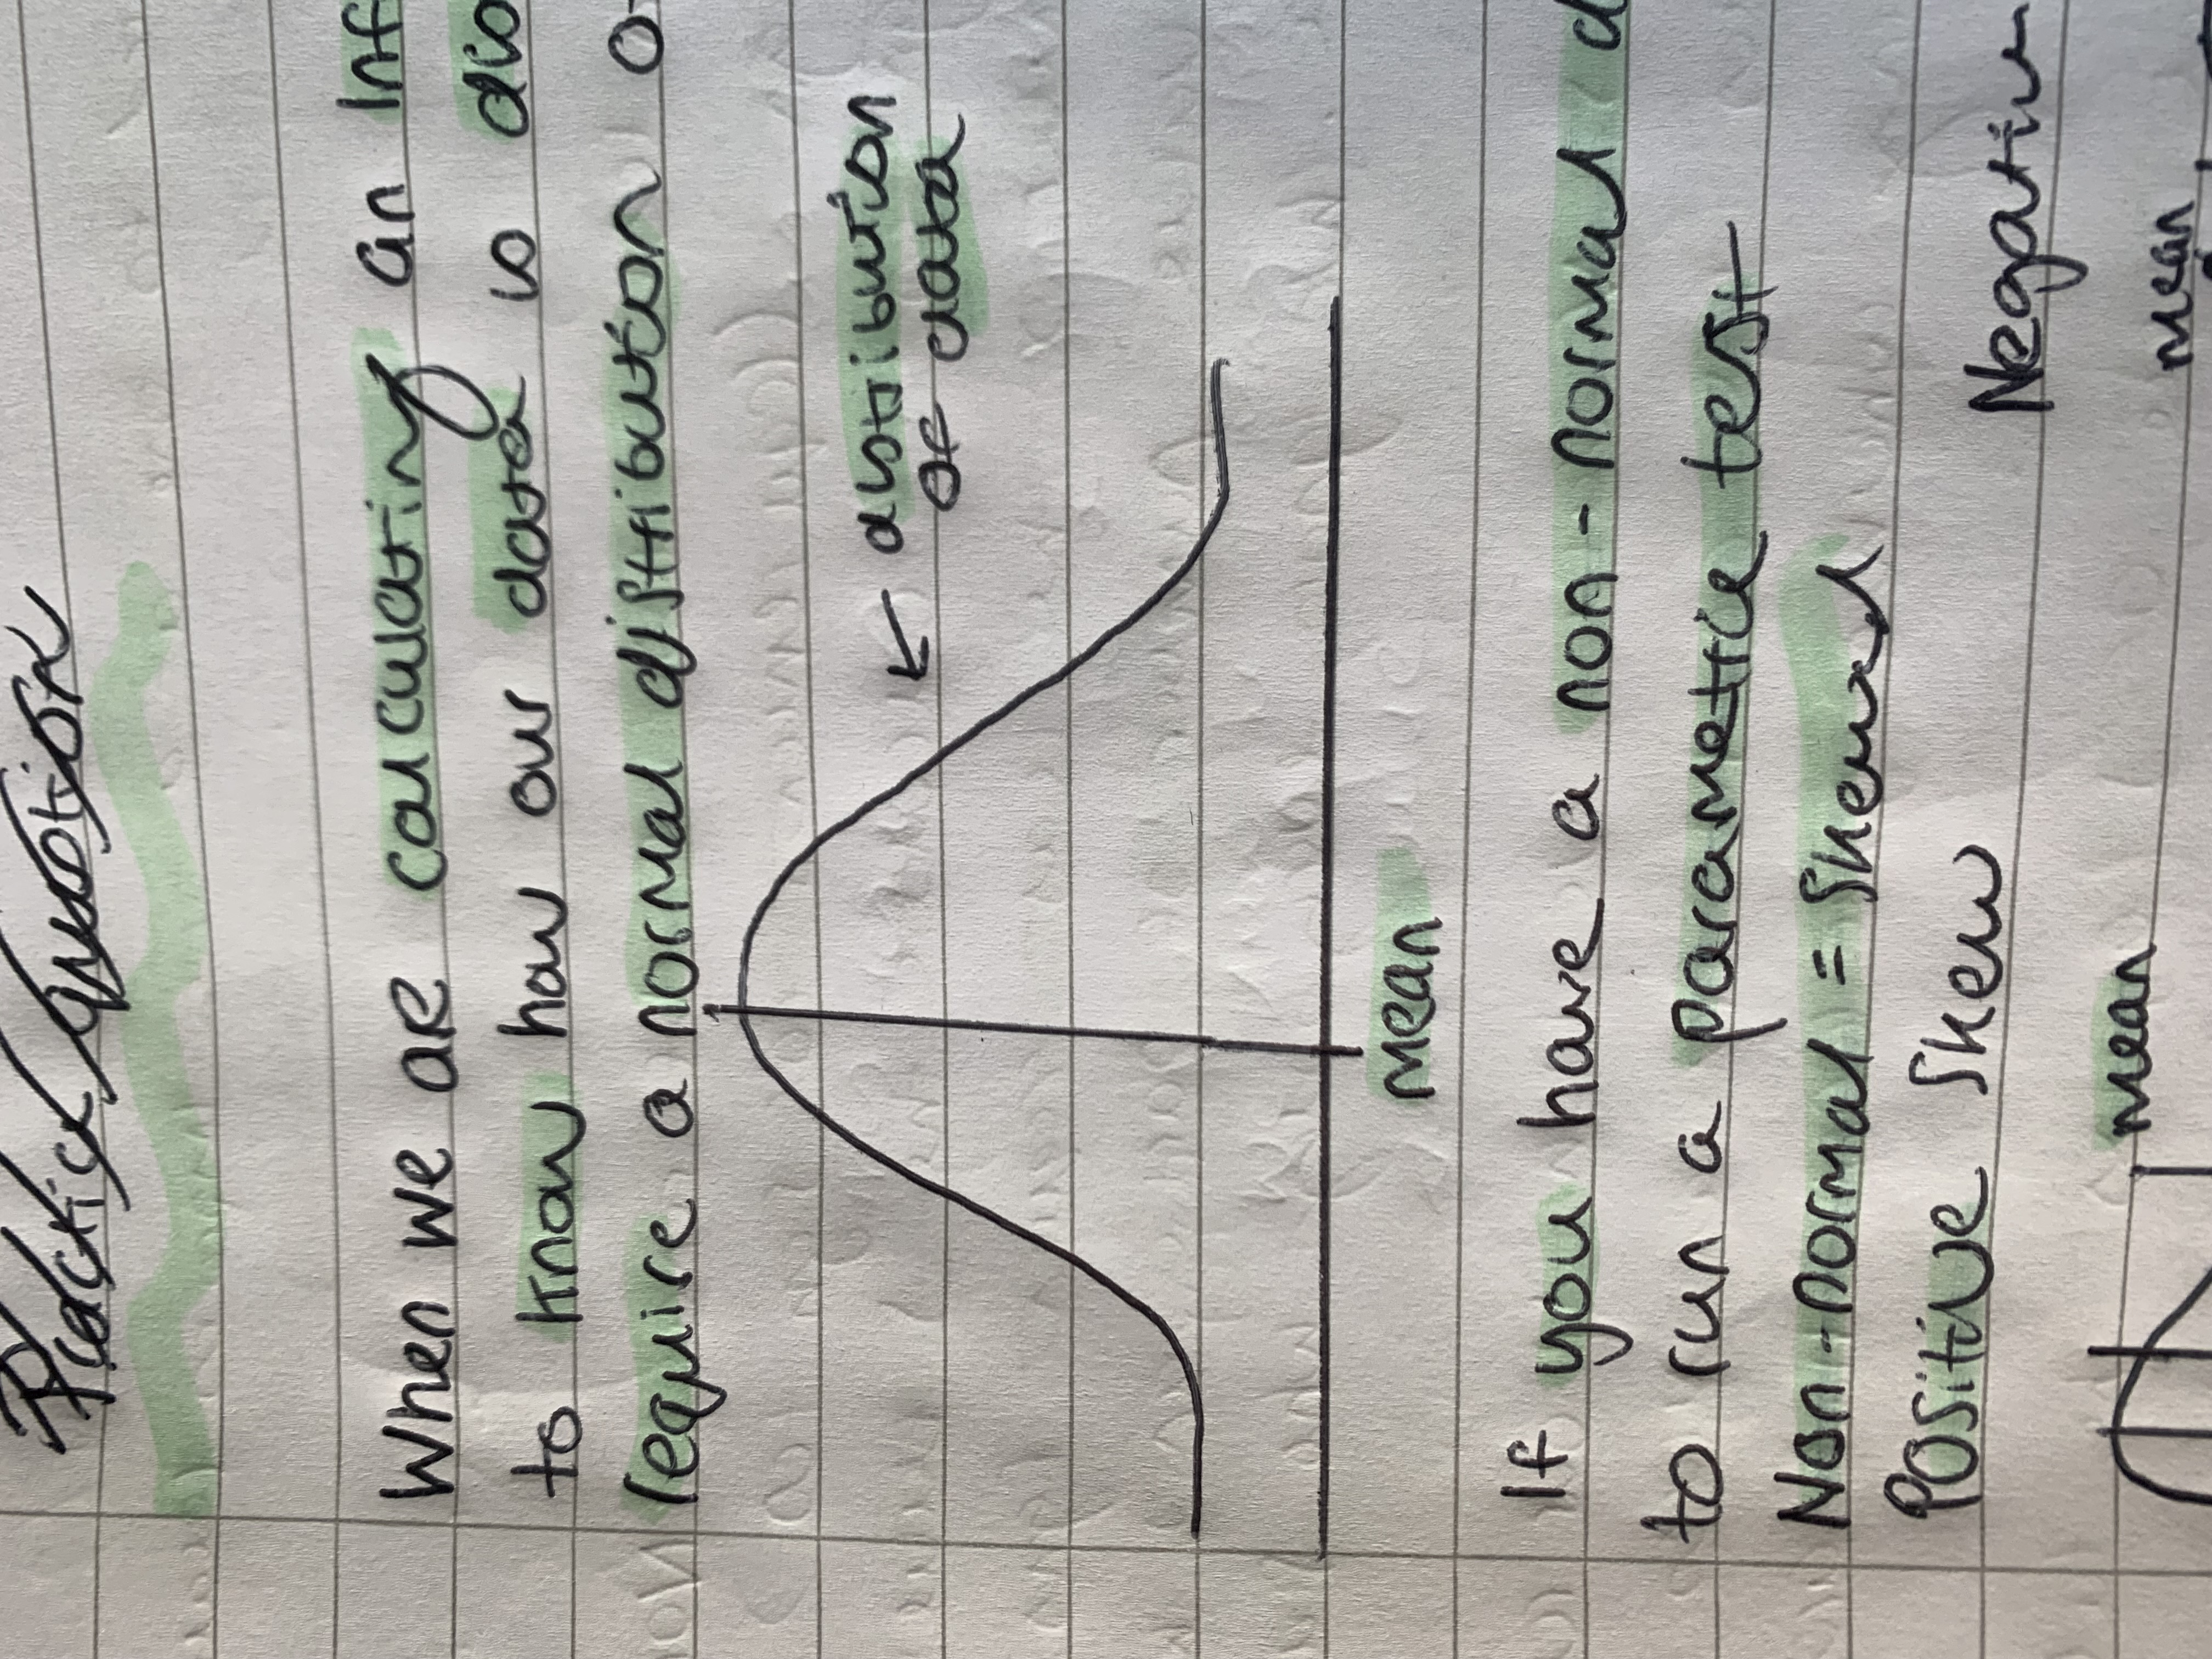 Practice Question
When we are calculating an Inf
to know how our data is dis
require a normal distribution o
distribution
of data
mean
If you have a non-normal d
to run a parametric test
Non-normal = skewed
Positive skew Negative
mean mean